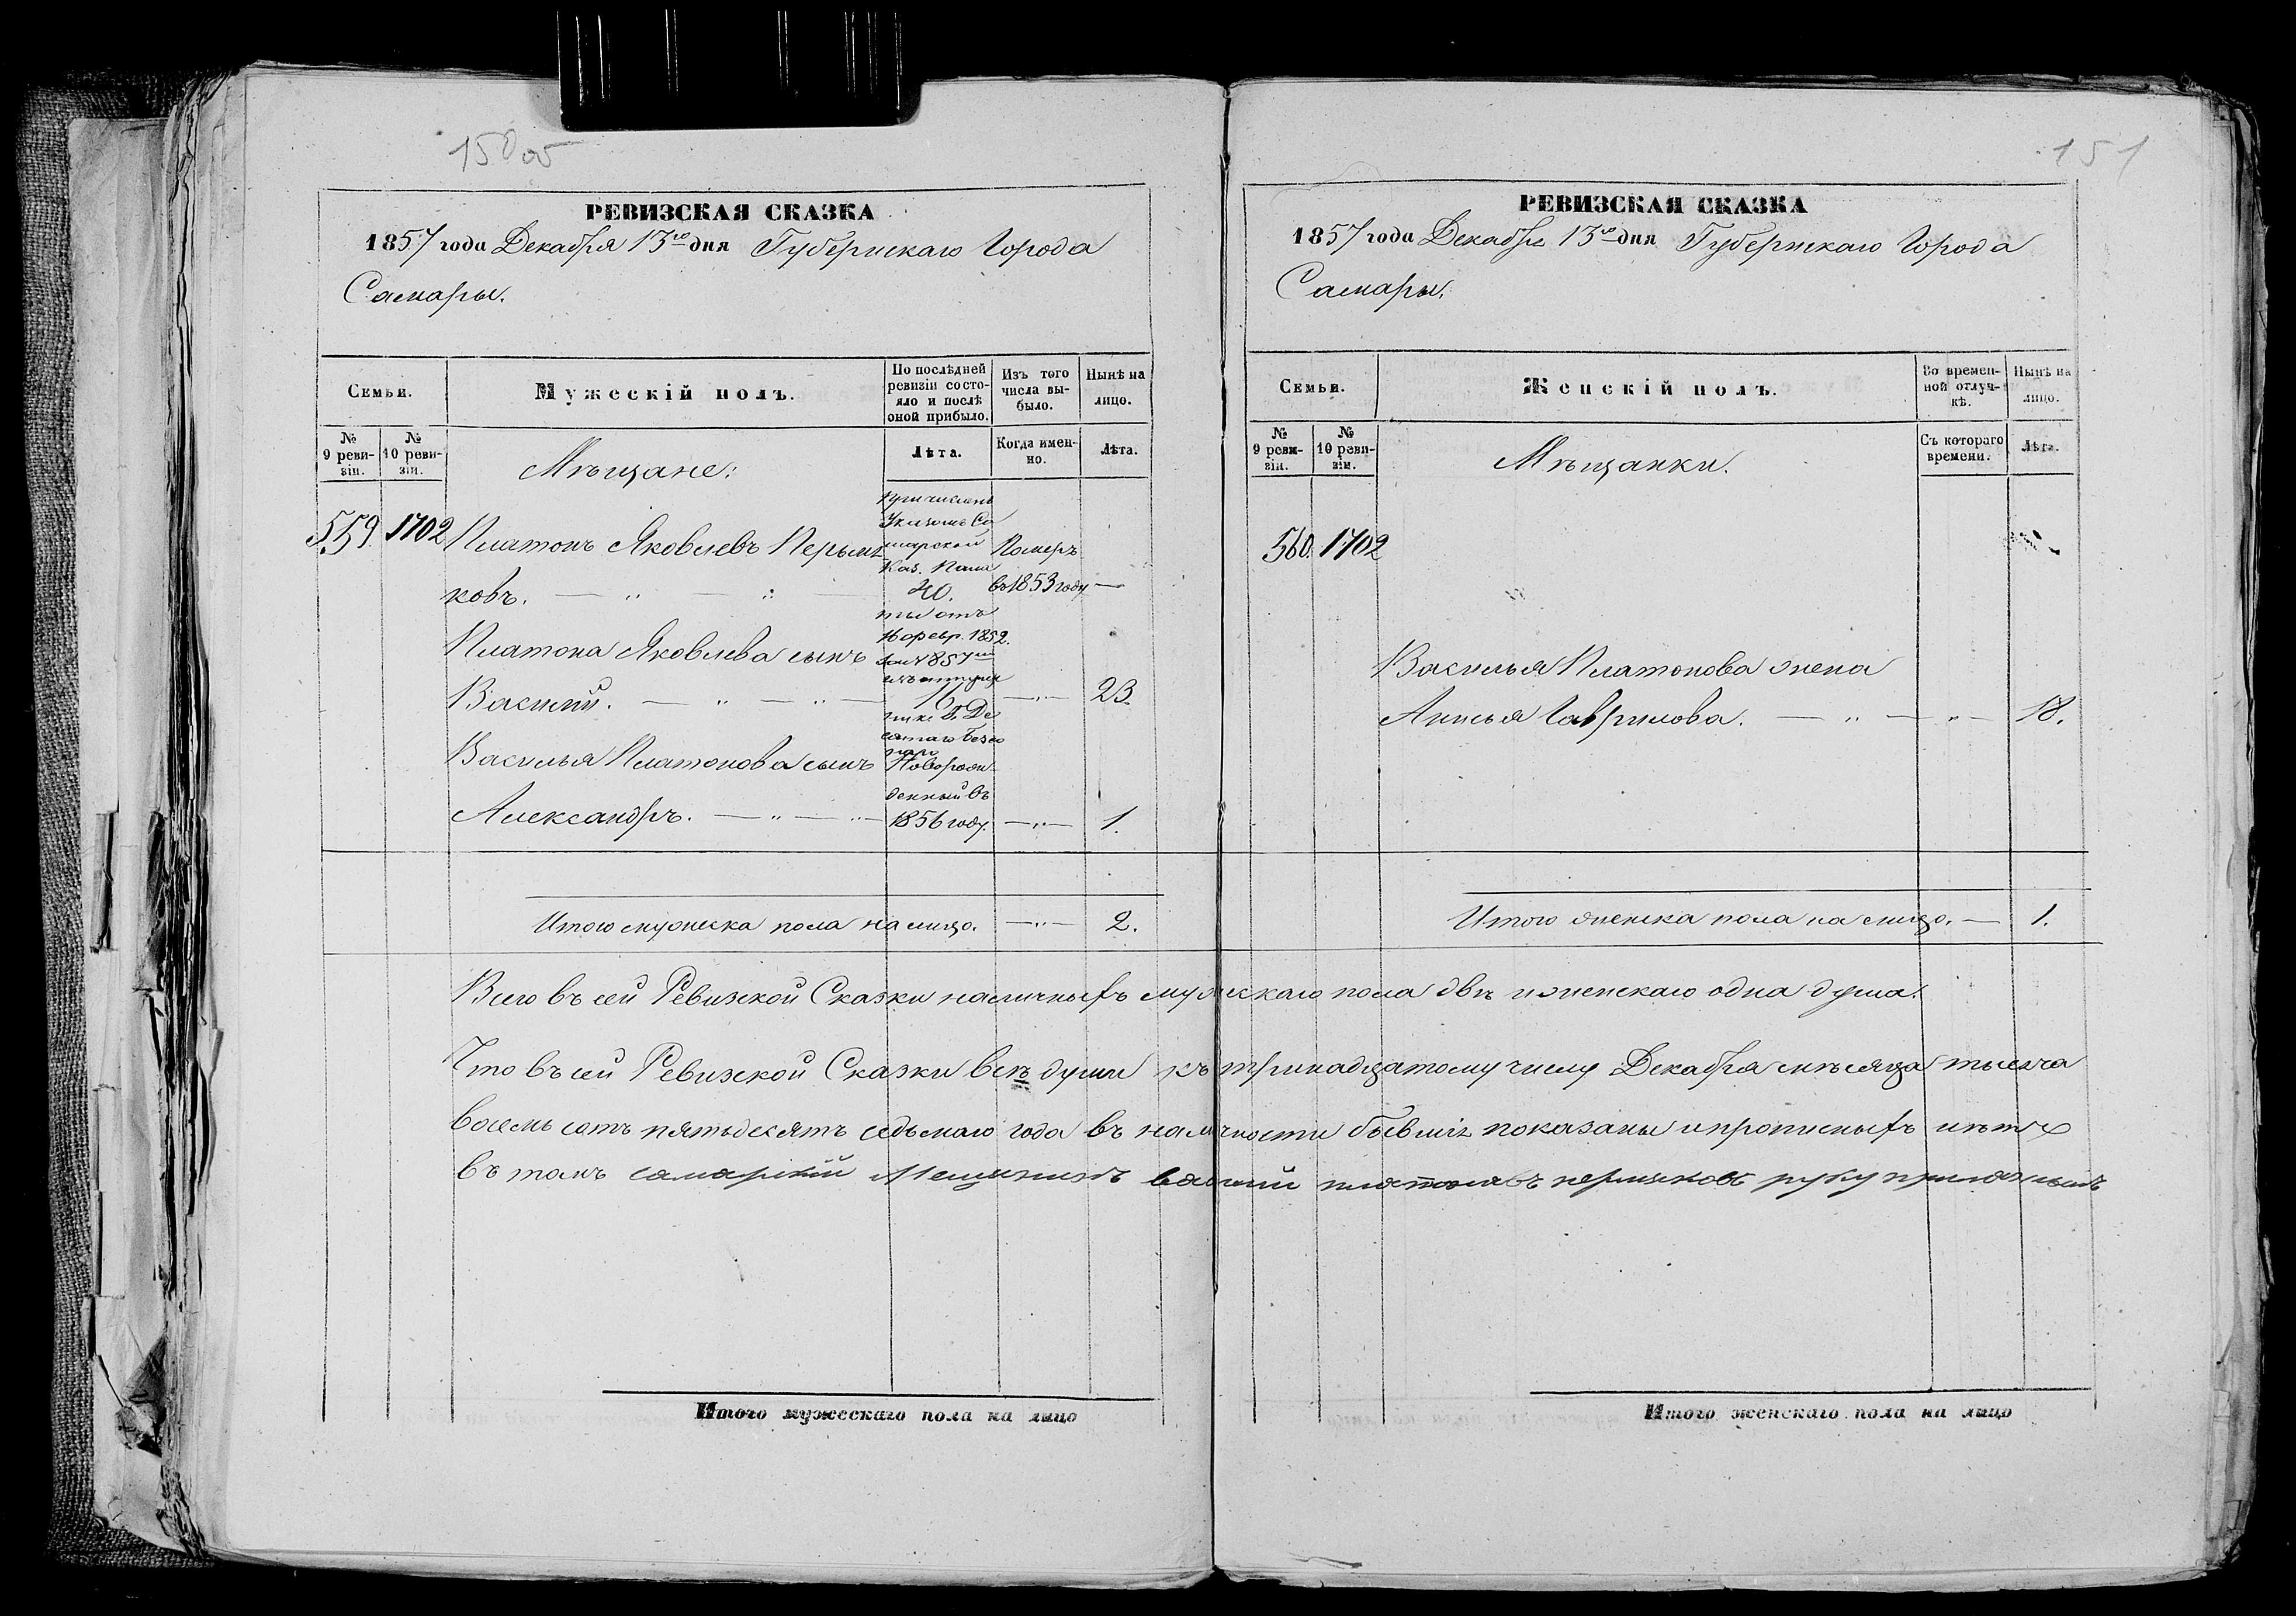 150об
РЕВИЗСКАЯ СКАЗКА
1857 года Декабря 13го дня Губернскаго Города
Самары.
Семьи.
Мужескій полъ.
По послѣдней ревизіи состояло и послѣ оной прибыло.
Изъ того числа выбыло.
Нынѣ на лицо.
№ 9 ревизіи.
№ 10 ревизіи.
Мѣщане:
Лѣта.
Когда именно.
Лѣта.
559. 1702
Причисленъ
Указомъ Са
марской
Каз. Пала
ты отъ
16 февр. 1852.
Платонъ Яковлевъ Пермя
ковъ. — „ — „ — 40.
Померъ
въ 1853 году —
Платона Яковлева сынъ
Василій. — „ — „ — — „ — 23.
Василья Платонова сынъ
Новорож
денный въ
Александръ. — „ — „ — 1856 году. — „ — 1.
Итого мужеска пола на лицо. — „ — 2.
151
РЕВИЗСКАЯ СКАЗКА
1857 года Декабря 13го дня Губернскаго Города
Самары.
Семьи.
Женскій полъ.
Во временной отлучкѣ.
Нынѣ на лицо.
№ 9 ревизіи.
№ 10 ревизіи.
Мѣщанки.
Съ котораго времени.
Лѣта.
560. 1702
Василья Платонова жена
Анисья Гаврилова. — „ — „ — 18.
Итого женска пола на лицо. — 1.
Всего въ сей Ревизской Сказки наличныхъ мужскаго пола двѣ и женскаго одна душа.
Что въ сей Ревизской Сказки всѣ души къ тринадцатому числу Декабря мѣсяца тысяча
восемь сотъ пятьдесятъ седьмаго года въ наличности бывшіе показаны и прописныхъ нѣтъ
въ томъ самарскій мещанинъ василий платоновъ пермяковъ руку приложилъ
Итого мужескаго пола на лицо
Итого женскаго пола на лицо